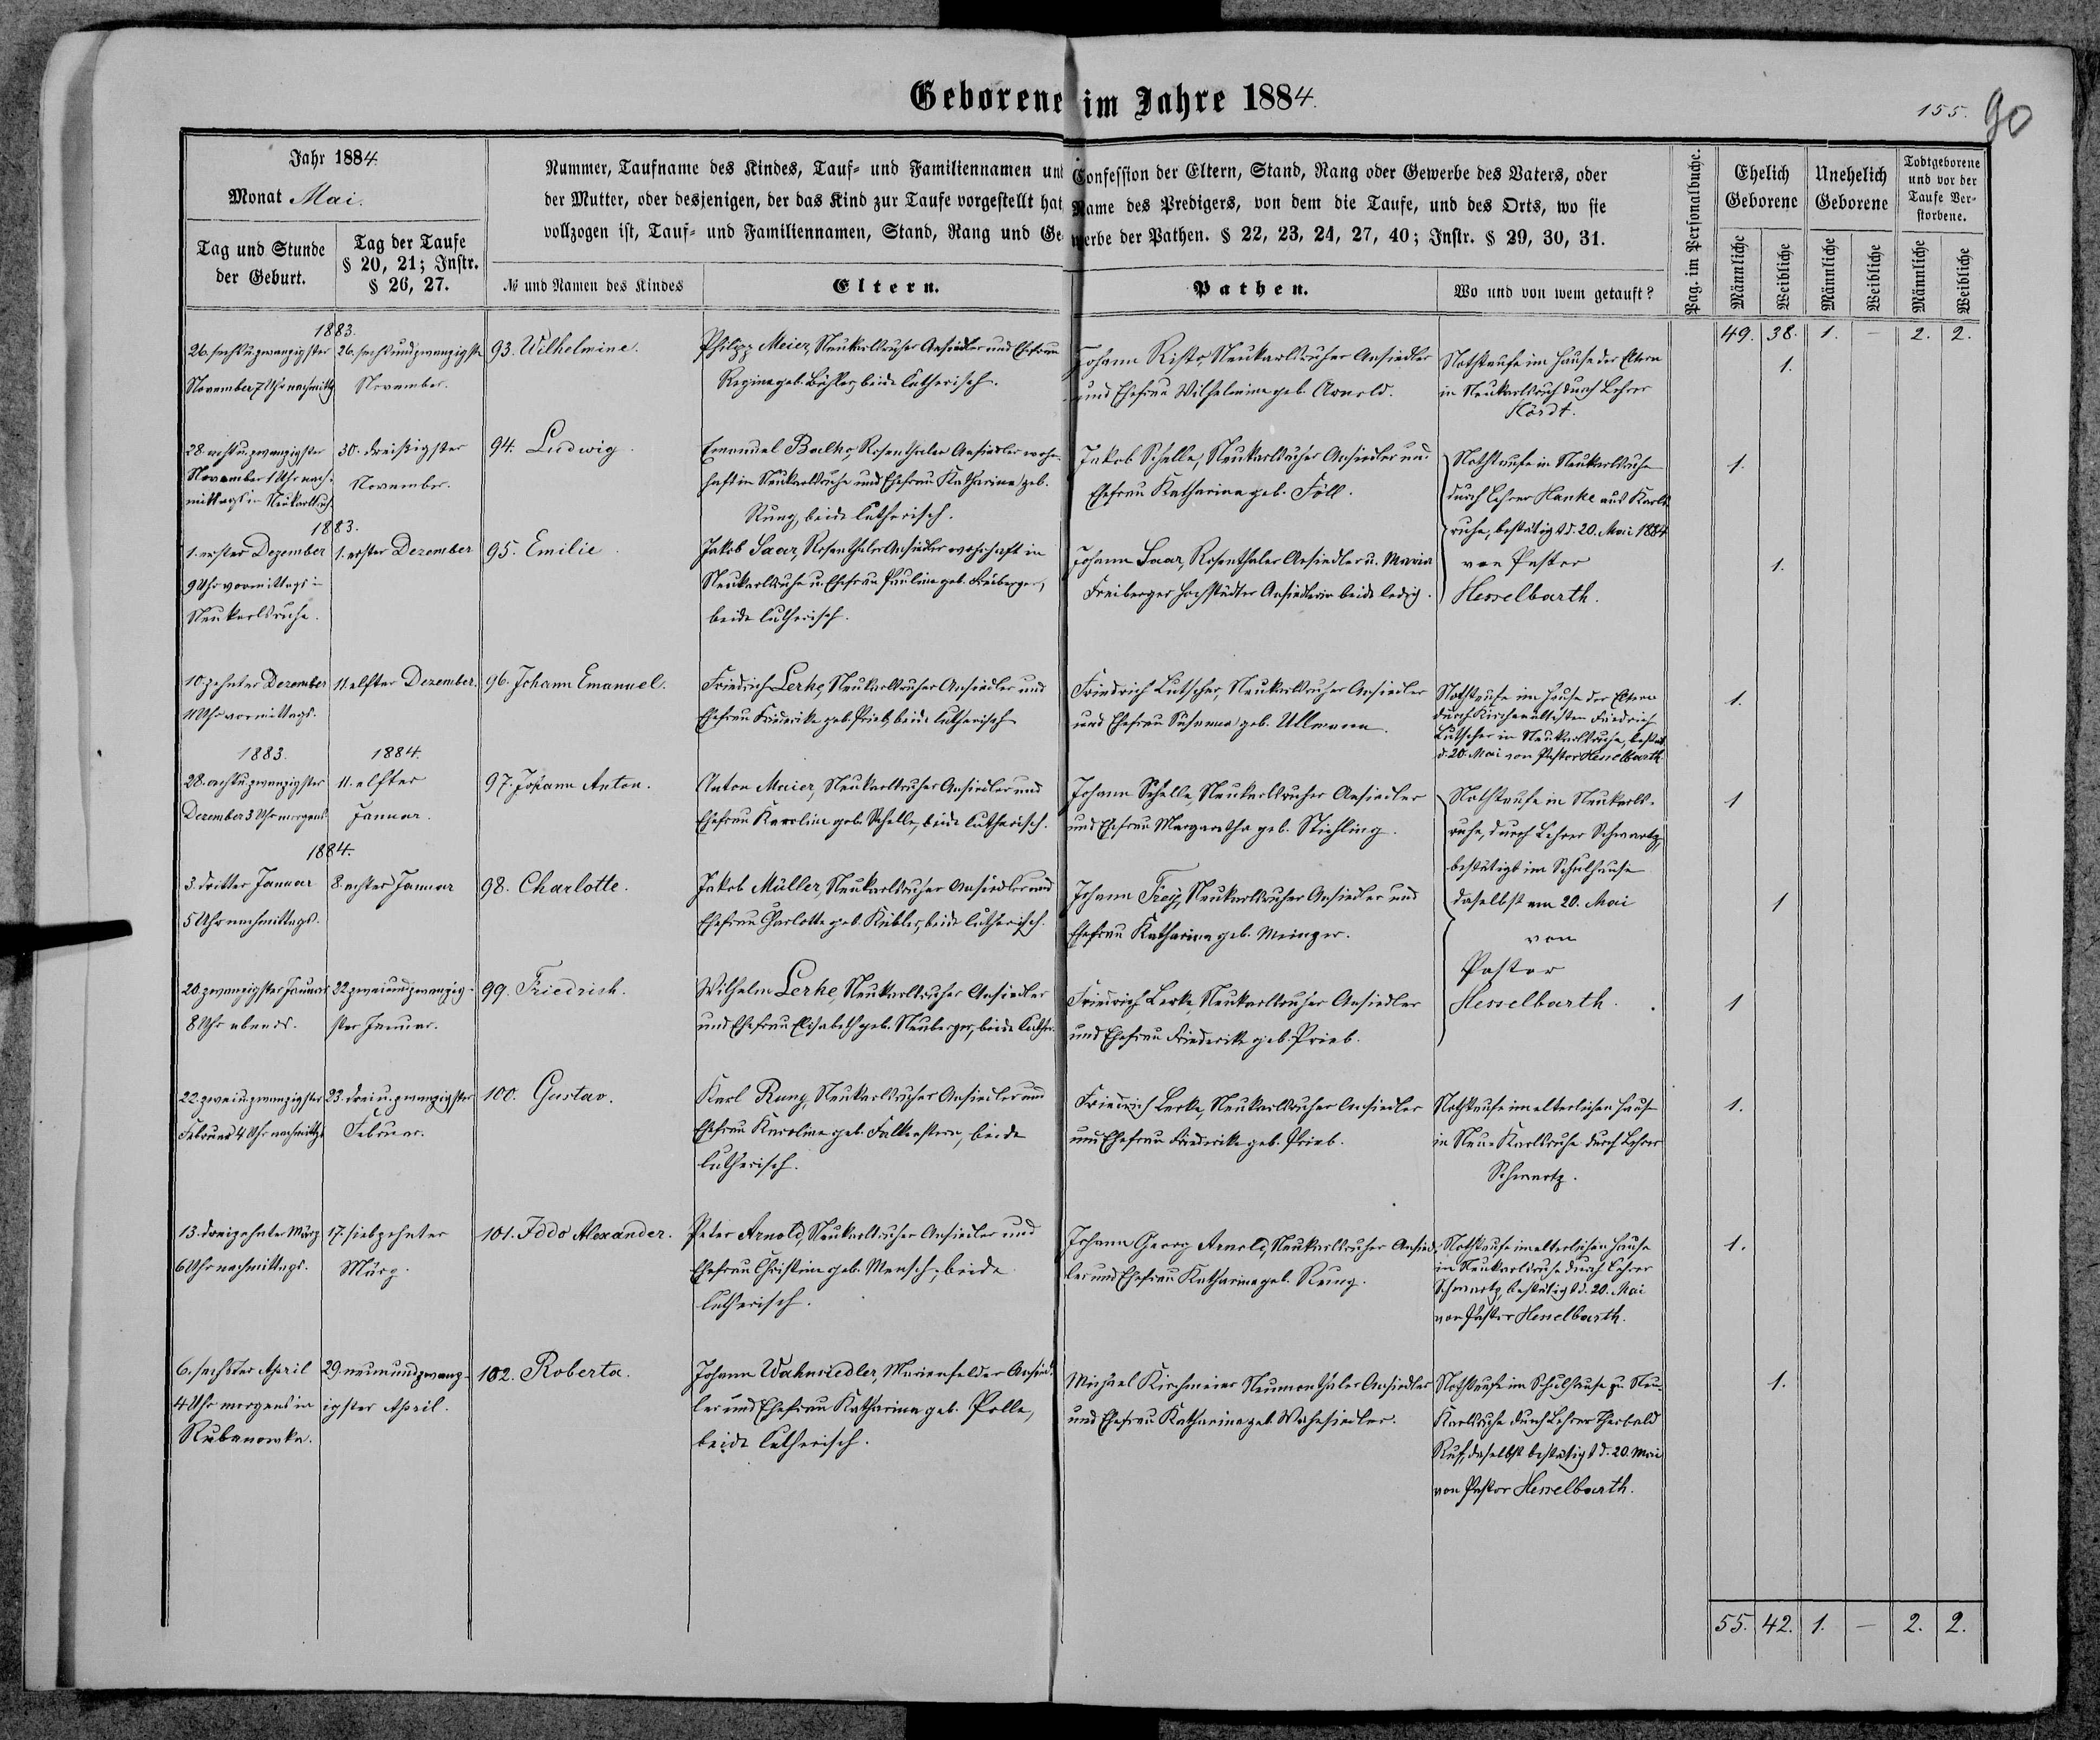 Geborene im Jahre 1884.
155. 90
Jahr 1884.
Monat Mai.
Tag und Stunde der Geburt.
Tag der Taufe § 20, 21; Instr. § 26, 27.
Nummer, Taufname des Kindes, Tauf- und Familiennamen und Confession der Eltern, Stand, Rang oder Gewerbe des Vaters, oder
der Mutter, oder desjenigen, der das Kind zur Taufe vorgestellt hat, Name des Predigers, von dem die Taufe, und des Orts, wo sie
vollzogen ist, Tauf- und Familiennamen, Stand, Rang und Gewerbe der Pathen. § 22, 23, 24, 27, 40; Instr. § 29, 30, 31.
№ und Namen des Kindes
Eltern.
Pathen.
Wo und von wem getauft?
Pag. im Personalbuche.
Ehelich Geborene
Unehelich Geborene
Todtgeborene und vor der Taufe Verstorbene.
Männliche Weibliche Männliche Weibliche Männliche Weibliche
49. 38. 1. — 2. 2.
1883.
26. sechsu.zwanzigster
November 7 Uhr nachmittg
26. sechsundzwanzigste
November.
93. Wilhelmine.
Philipp Meier, Neukarlsruher Ansiedler und Ehefrau
Regine geb. Böhler, beide lutherisch.
Johann Risto, Neukarlsruher Ansiedler
und Ehefrau Wilhelmine geb. Arnold.
Nothtaufe im Hause der Eltern
in Neukarlsruh durch Lehrer
Kördt.
1.
28. achtu.zwanzigster
November 1 Uhr nach-
mittags in Neukarlsruh.
30. dreißigster
November.
94. Ludwig.
Emanuel Balko, Rosenthaler Ansiedler wohn-
haft in Neukarlsruhe und Ehefrau Katharina geb.
Rung, beide lutherisch.
Jakob Schelle, Neukarlsruher Ansiedler und
Ehefrau Katharina geb. Föll.
Nothtaufe in Neukarlsruhe
durch Lehrer Hanke aus Karls-
ruhe, bestätigt d. 20. Mai 1884
von Pastor
Hesselbarth.
1.
1883.
1. erster Dezember
9 Uhr vormittags in
Neukarlsruhe.
1. erster Dezember
95. Emilie.
Jakob Saar, Rosenthaler Ansiedler wohnhaft in
Neukarlsruhe u. Ehefrau Pauline geb. Freiberger,
beide lutherisch.
Johann Saar, Rosenthaler Ansiedler u. Maria
Freiberger Hochstädter Ansiedlerin beide ledig.
1.
10. zehnter Dezember
11 Uhr vormittags.
11. elfter Dezember.
96. Johann Emanuel.
Friedrich Lerke, Neukarlsruher Ansiedler und
Ehefrau Friederike geb. Prieb, beide lutherisch
Friedrich Lutscher, Neukarlsruher Ansiedler
und Ehefrau Susanna geb. Ullmann.
Nothtaufe im Hause der Eltern
durch Kirchenältesten Friedrich
Lutscher in Neukarlsruhe, bestät.
d. 20. Mai von Pastor Hesselbarth
1.
1883.
1884.
28. achtu.zwanzigster
Dezember 3 Uhr morgens
11. elfter
Januar.
97. Johann Anton.
Anton Maier, Neukarlsruher Ansiedler und
Ehefrau Karoline geb. Schelle, beide lutherisch.
Johann Schelle Neukarlsruher Ansiedler
und Ehefrau Margaretha geb. Stichling.
Nothtaufe in Neukarls-
ruhe, durch Lehrer Schwartz,
bestätigt im Schulhause
daselbst am 20. Mai
von
Pastor
Hesselbarth.
1
1884.
3. dritter Januar
5 Uhr nachmittags.
8. achter Januar
98. Charlotte.
Jakob Müller, Neukarlsruher Ansiedler und
Ehefrau Charlotte geb. Kübler, beide lutherisch.
Johann Frey, Neukarlsruher Ansiedler und
Ehefrau Katharina geb. Meinzer.
1
20. zwanzigster Januar
8 Uhr abends.
22. zweiundzwanzig-
ster Januar.
99. Friedrich.
Wilhelm Lerke, Neukarlsruher Ansiedler
und Ehefrau Elisabeth geb. Neuberger, beide luther.
Friedrich Lerke, Neukarlsruher Ansiedler
und Ehefrau Friederike geb. Prieb.
1
22. zweiu.zwanzigster
Februar 4 Uhr nachmittgs
23. dreiu.zwanzigster
Februar.
100. Gustav.
Karl Rung, Neukarlsruher Ansiedler und
Ehefrau Karoline geb. Falkenstern, beide
lutherisch.
Friedrich Lerke, Neukarlsruher Ansiedler
und Ehefrau Friederike geb. Prieb.
Nothtaufe im elterlichen Hause
in Neu-Karlsruhe durch Lehrer
Schwartz.
1.
13. dreizehnter März
6 Uhr nachmittags.
17. siebzehnter
März.
101. Iddo Alexander.
Peter Arnold, Neukarlsruher Ansiedler und
Ehefrau Christine geb. Mensch, beide
lutherisch.
Johann Georg Arnold, Neukarlsruher Ansied-
ler und Ehefrau Katharina geb. Rung.
Nothtaufe im elterlichen Hause
in Neukarlsruhe durch Lehrer
Schwartz, bestätigt d. 20. Mai
von Pastor Hesselbarth.
1.
6. sechster April
4 Uhr morgens in
Rubanowka.
29. neunundzwanz-
igster April.
102. Roberta.
Johann Wahnsiedler, Marienfelder Ansied-
ler und Ehefrau Katharina geb. Polle,
beide lutherisch.
Michael Kirchmeier Neumonthaler Ansiedler
und Ehefrau Katharina geb. Wahnsiedler.
Nothtaufe im Schulhause zu Neu-
Karlsruhe durch Lehrer Theobald
Ruf, daselbst bestätigt d. 20. Mai
von Pastor Hesselbarth.
1.
55. 42. 1. — 2. 2.